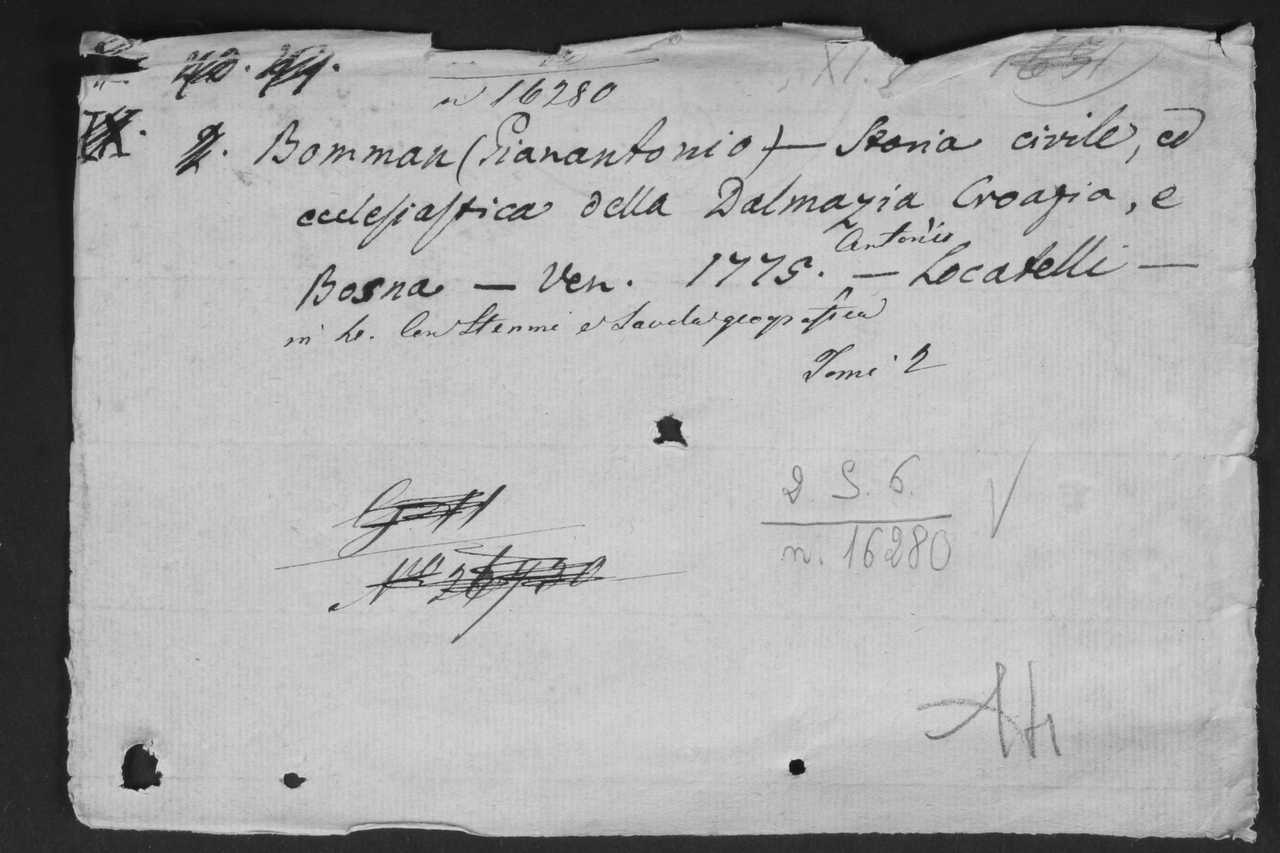 n 16280
Bomman (Gianantonio) — Storia civile, ed
ecclesiastica della Dalmazia Croazia, e
Antonio
Bosna — Ven. 1775. — Locatelli —
in 4o. Con Stemmi e Tavola geografica
Tomi 2
2. S. 6.
n. 16280